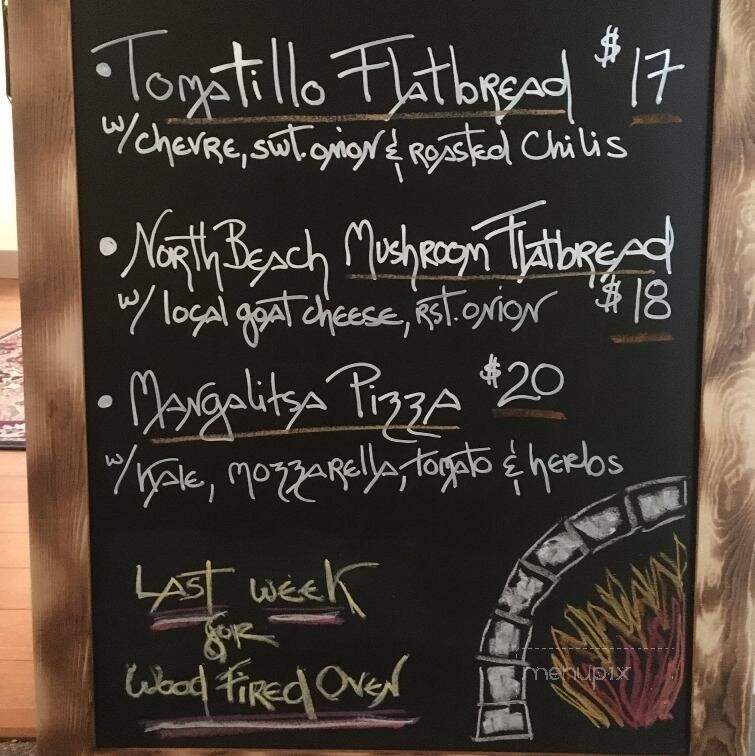 • Tomatillo Flatbread $17
w/ chevre, swt. onion & roasted chilis
• North Beach Mushroom Flatbread
w/ local goat cheese, rst. onion $18
• Mangalitsa Pizza $20
w/ kale, mozzarella, tomato & herbs
Last week
for
Wood Fired Oven
menupix